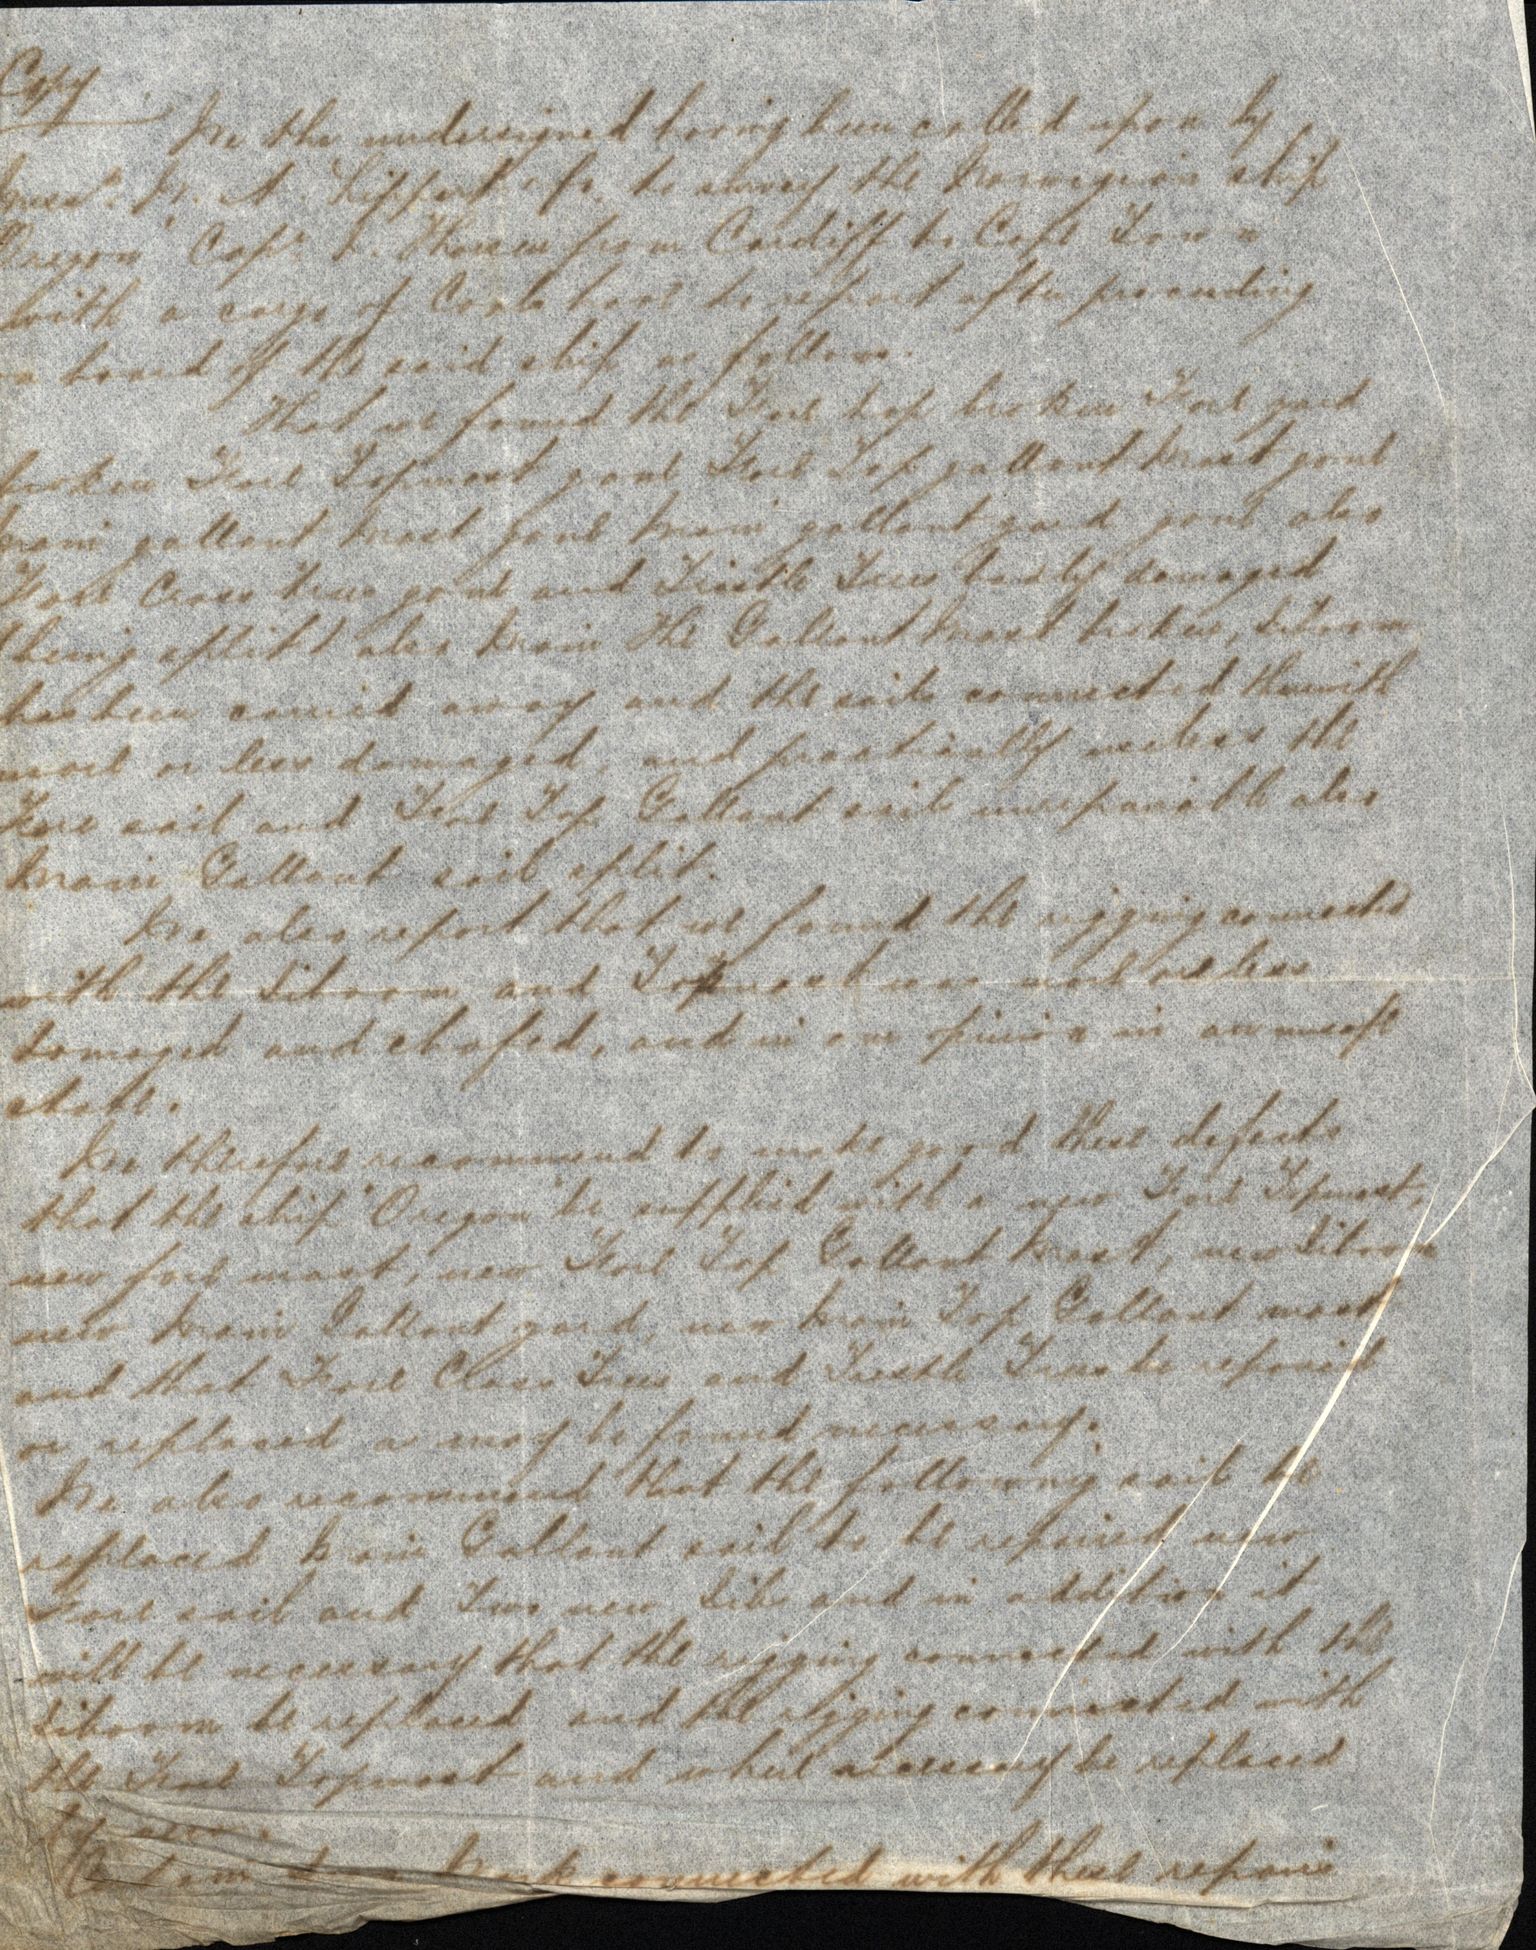 Copy
We the undersigned having been called upon by
Mess.rs W. A. Lippert & Co. to survey the Norwegian ship
"Oregon" Capt. L. from Cardiff to Cape Town
with a cargo of Coals have to report after proceeding
on board of the said ship as follows.
That we found the Fore top broken Fore yard
broken Fore Topmast gone Fore Top gallant Mast gone
Main gallant Mast gone Main gallant yard gone also
Fore Cross trees gone and Trestle Trees badly damaged
being split also Main Gallant Mast broken, Jiboom
has been carried away and the sails connected therewith
more or less damaged, and practically useless the
Fore sail and Fore Top Gallant sail unrepairable also
Main Gallant sail split.
We also report that we found the rigging connected
with the Jiboom and Topmast was more or less
damaged and chafed, and in our opinion in an unsafe
state.
We therefore recommend to make good these defects
that the ship "Oregon" be supplied with a new Fore Topmast,
new fore mast, new Fore Top Gallant Mast, new Jiboom
new Main Gallant yard, new Main Top Gallant mast
and that Fore Cross Trees and Trestle Trees be repaired
or replaced as may be found necessary.
We also recommend that the following sails be
replaced Main Gallant sail to be repaired new
Fore sail and Two new Jibs and in addition it
will be necessary that the rigging connected with the
Jiboom be replaced and the rigging connected with
the Fore Topmast and where necessary be replaced
Work connected with these repairs